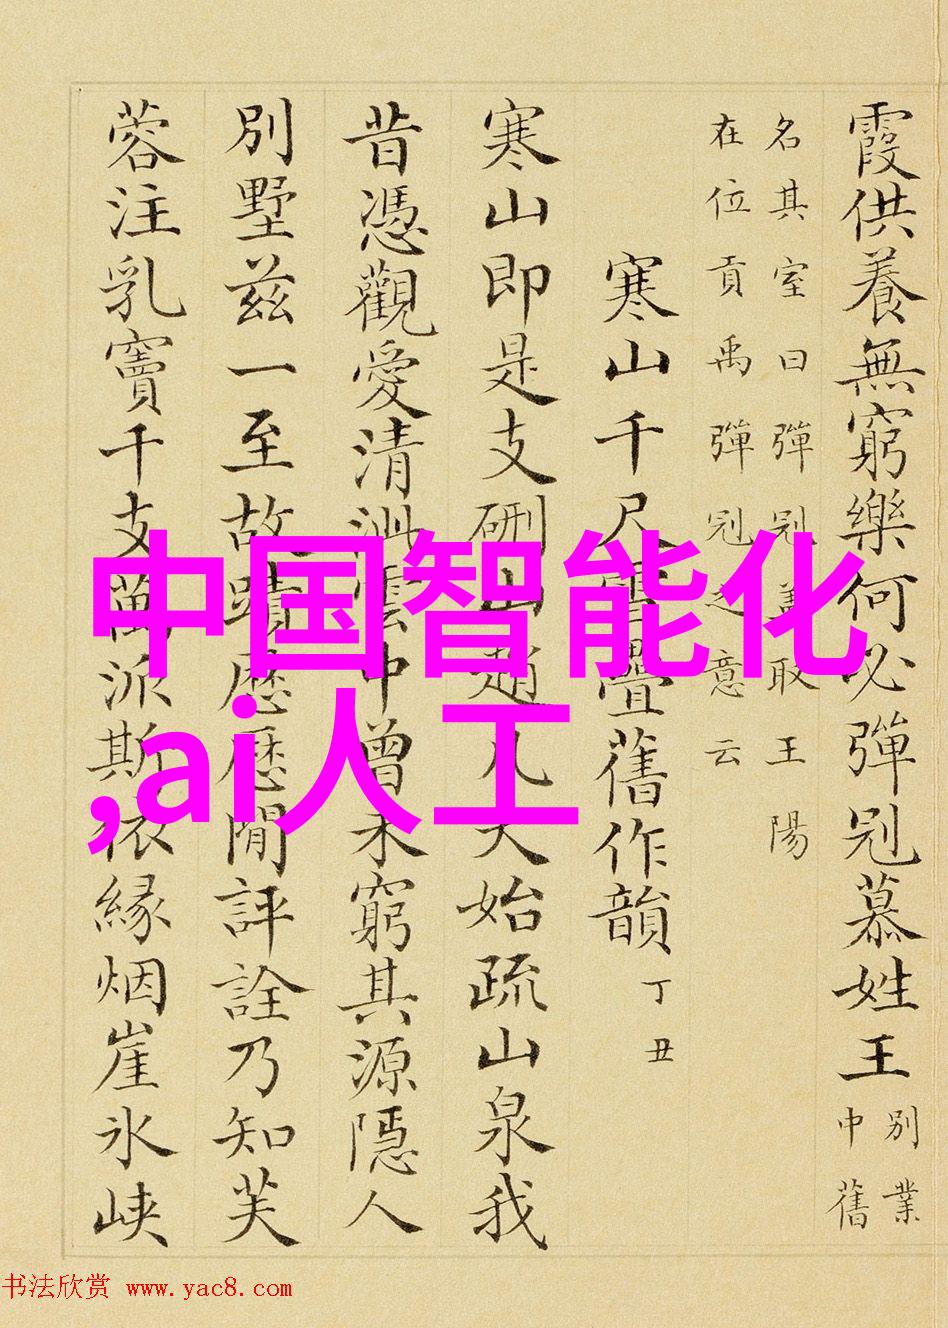 霞供養無窮樂何必彈剜慕姓王
別業
中舊
名其室曰彈剜蓋取王陽
在位貢禹彈剜之意云
寒山千尺雪疊舊作韻
丁丑
寒山即是支硎山趙凡夫始疏山泉我
昔憑觀愛清泚雲中曾未窮其源隱人
別墅茲一至故蹟歷歷閒評詮乃知芙
蓉注乳竇千支萬派斯依緣烟崖氷峽
中国智能化
,ai人工
书法欣赏 www.yac8.com